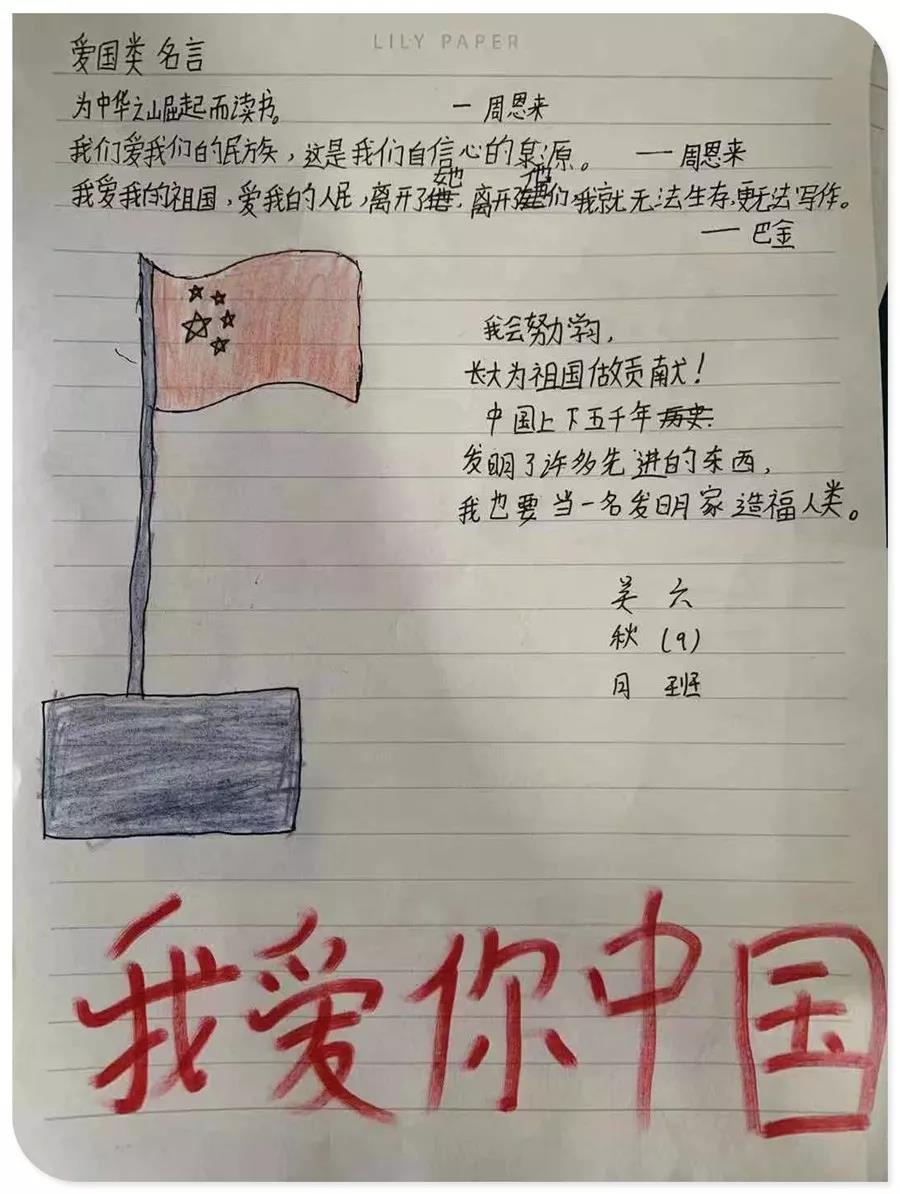 LILY PAPER
爱国类 名言
为中华之崛起而读书。 — 周恩来
我们爱我们的民族，这是我们自信心的泉源。 —— 周恩来
我爱我的祖国，爱我的人民，离开了她，离开了他们，我就无法生存，更无法写作。
—— 巴金
我会努力学习，
长大为祖国做贡献！
中国上下五千年历史
发明了许多先进的东西，
我也要当一名发明家造福人类。
吴 六
秋 (9)
月 班
我爱你中国